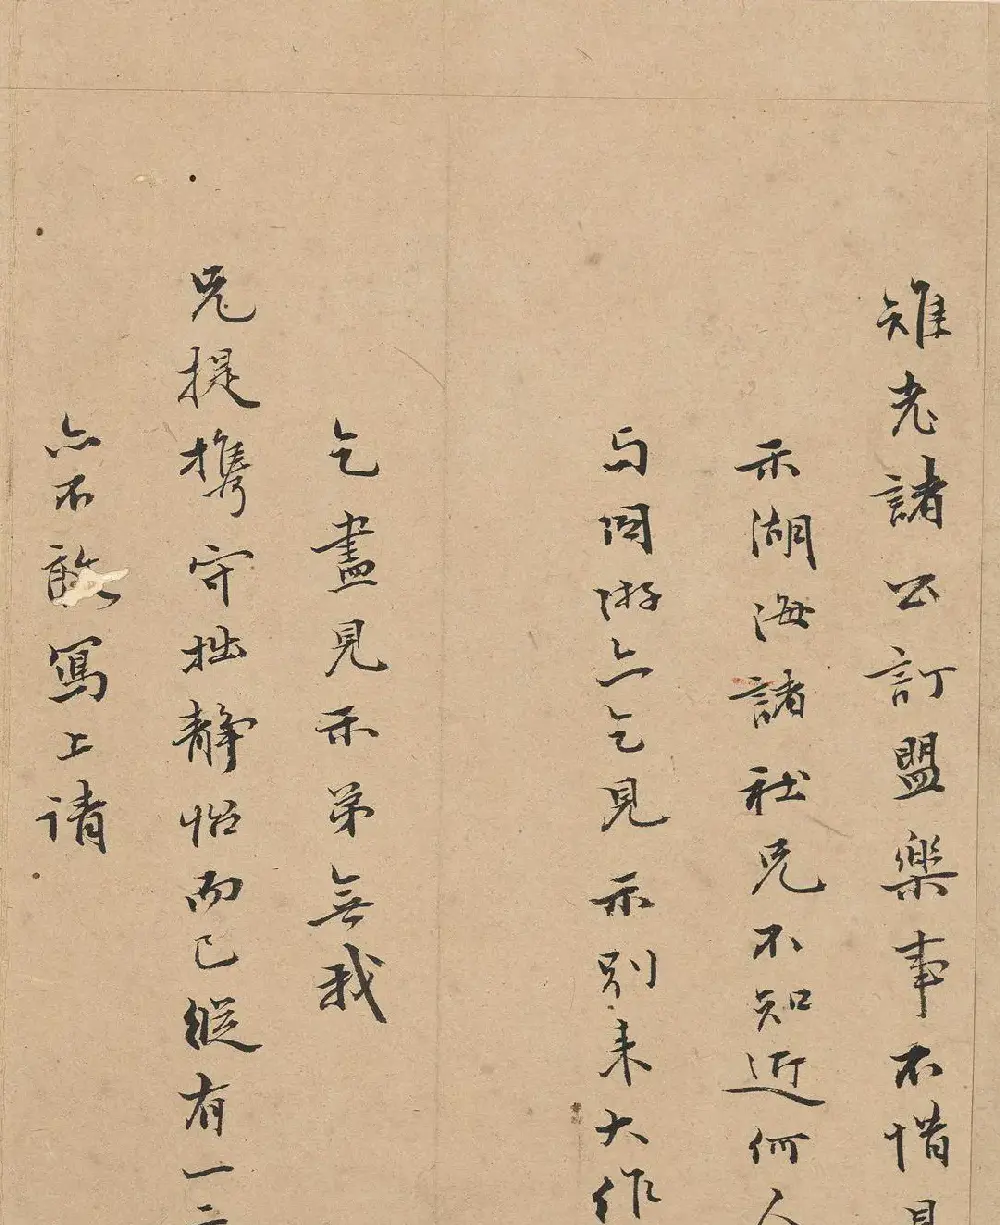 雉老諸公訂盟樂事不惜見
示湖海諸社兄不知近何人
与同游亦乞見示別来大作
乞盡見示弟無我
兄提攜守拙靜怡而已縱有一二
亦不敢寫上请